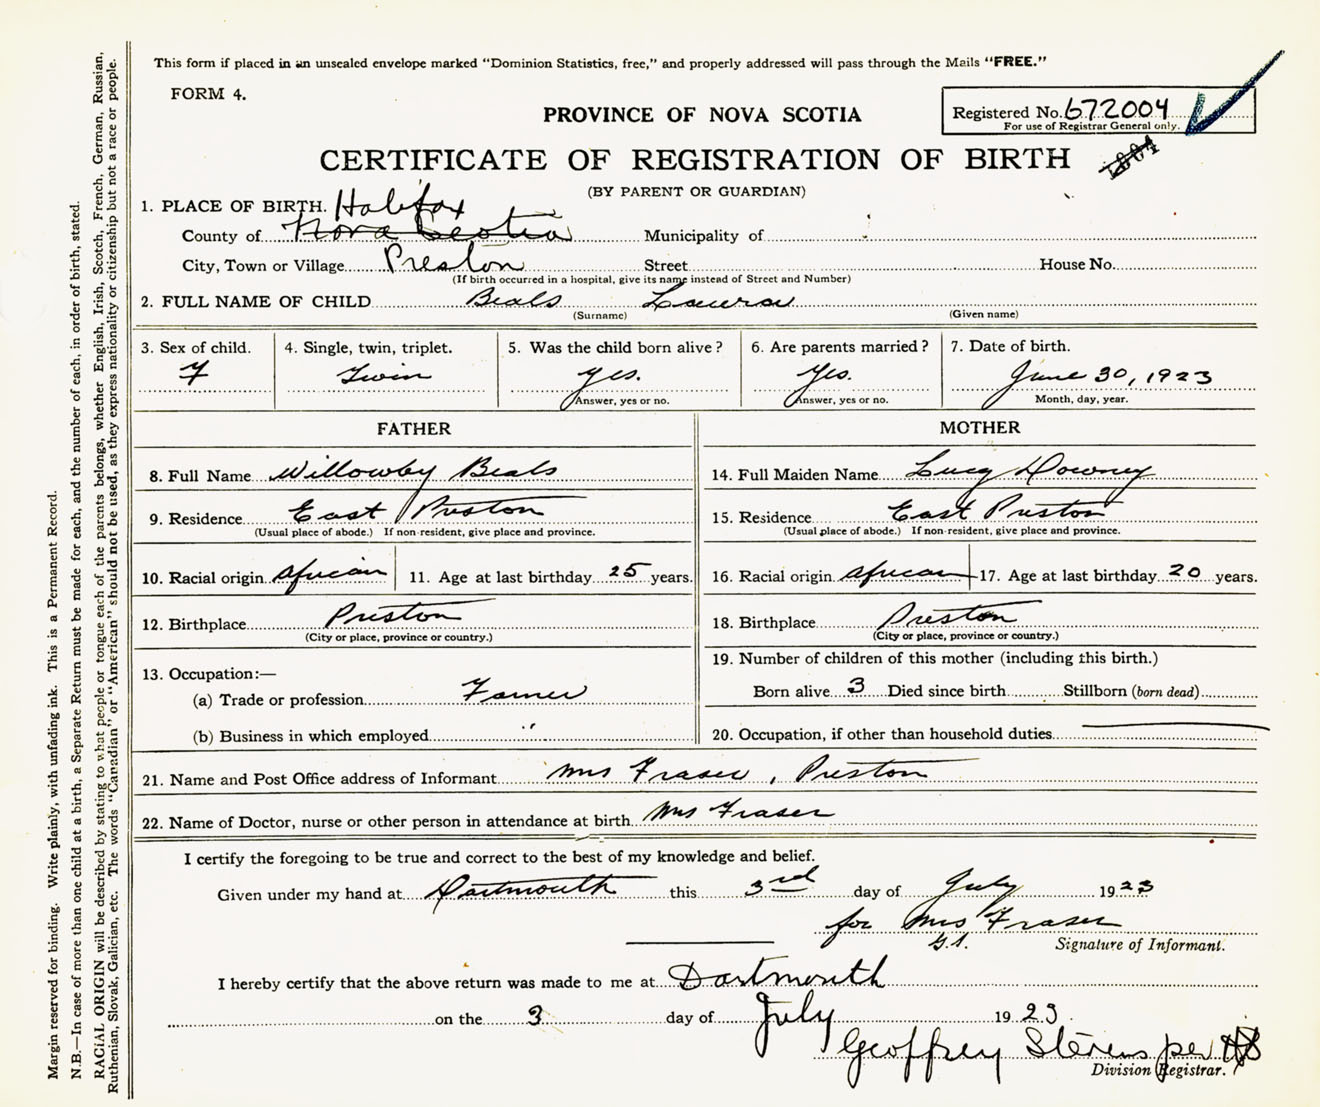 This form if placed in an unsealed envelope marked "Dominion Statistics, free," and properly addressed will pass through the Mails "FREE."
FORM 4.
PROVINCE OF NOVA SCOTIA
Registered No. 672004
For use of Registrar General only.
CERTIFICATE OF REGISTRATION OF BIRTH
(BY PARENT OR GUARDIAN)
1. PLACE OF BIRTH. Halifax
County of Nova Scotia Municipality of
City, Town or Village Preston Street House No.
(If birth occurred in a hospital, give its name instead of Street and Number)
2. FULL NAME OF CHILD Beals Laura
(Surname) (Given name)
3. Sex of child. 4. Single, twin, triplet. 5. Was the child born alive? 6. Are parents married? 7. Date of birth.
F Twin yes. Yes. June 30, 1923
Answer, yes or no. Answer, yes or no. Month, day, year.
FATHER MOTHER
8. Full Name Willowby Beals 14. Full Maiden Name Lucy Downey
9. Residence East Preston 15. Residence East Preston
(Usual place of abode.) If non-resident, give place and province. (Usual place of abode.) If non-resident, give place and province.
10. Racial origin African 11. Age at last birthday 25 years. 16. Racial origin African 17. Age at last birthday 20 years.
12. Birthplace Preston 18. Birthplace Preston
(City or place, province or country.) (City or place, province or country.)
19. Number of children of this mother (including this birth.)
13. Occupation:—
(a) Trade or profession Farmer Born alive 3 Died since birth Stillborn (born dead)
(b) Business in which employed " 20. Occupation, if other than household duties
21. Name and Post Office address of Informant Mrs Fraser, Preston
22. Name of Doctor, nurse or other person in attendance at birth Mrs Fraser
I certify the foregoing to be true and correct to the best of my knowledge and belief.
Given under my hand at Dartmouth this 3rd day of July 1923
for Mrs Fraser
G.S. Signature of Informant.
I hereby certify that the above return was made to me at Dartmouth
on the 3 day of July 1923
Geoffrey Stevens per
Division Registrar.
Margin reserved for binding. Write plainly, with unfading ink. This is a Permanent Record.
N.B.—In case of more than one child at a birth, a Separate Return must be made for each, and the number of each, in order of birth, stated.
RACIAL ORIGIN will be described by stating to what people or tongue each of the parents belongs, whether English, Irish, Scotch, French, German, Russian,
Ruthenian, Slovak, Galician, etc. The words "Canadian" or "American" should not be used, as they express nationality or citizenship but not a race or people.